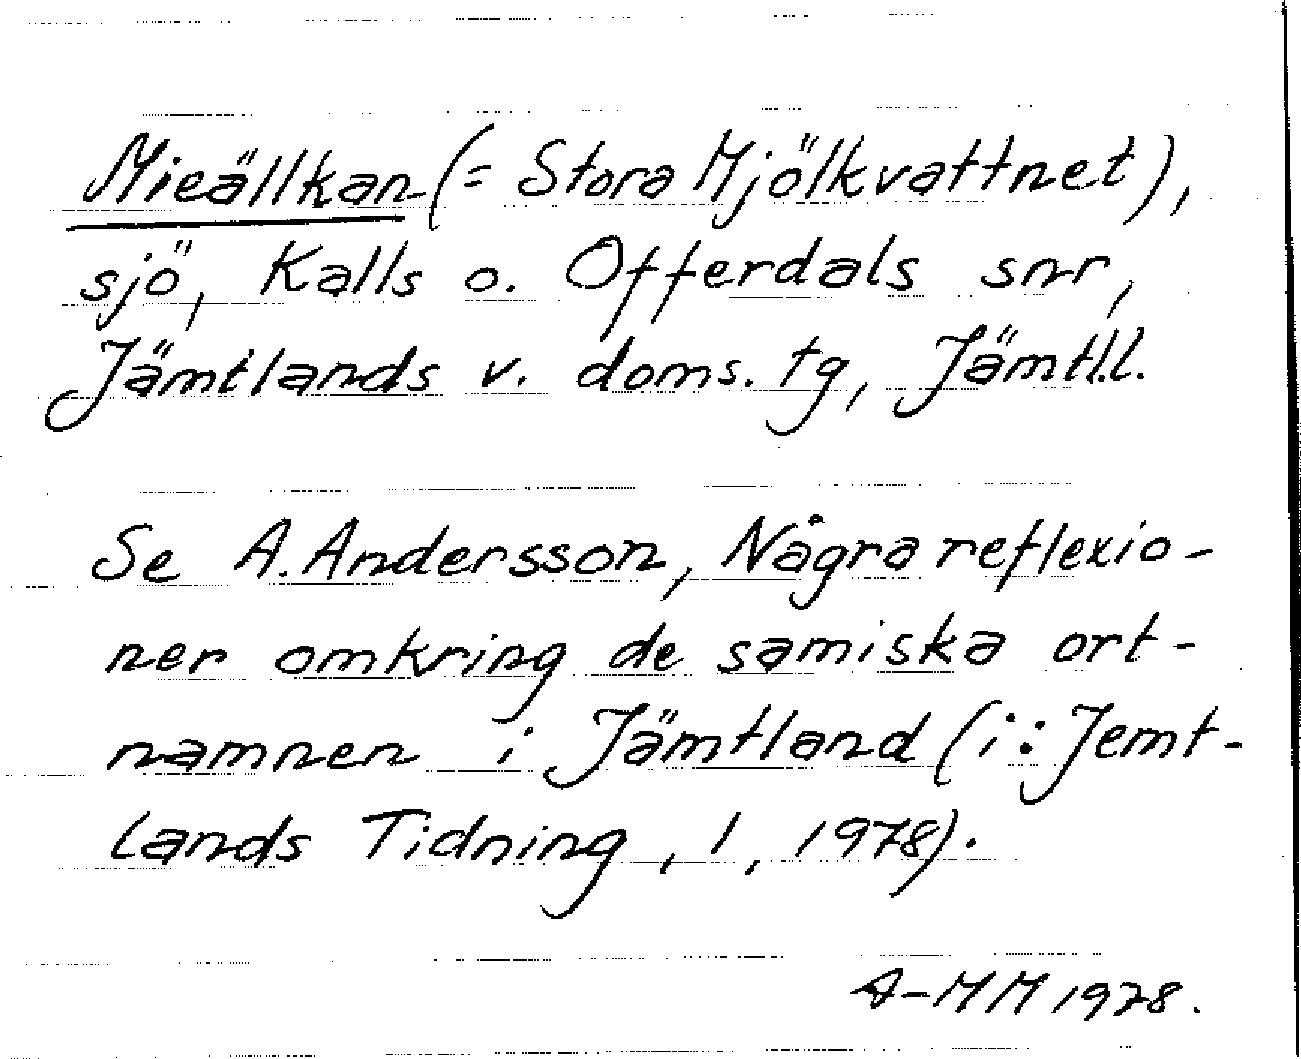 Mieällkan (= Stora Mjölkvattnet),
sjö, Kalls o. Offerdals snr,
Jämtlands v. doms. tg, Jämtl.l.
Se A. Andersson, Några reflexio-
ner omkring de samiska ort-
namnen i Jämtland (i: Jemt-
lands Tidning, 1, 1978).
A-MM 1978.